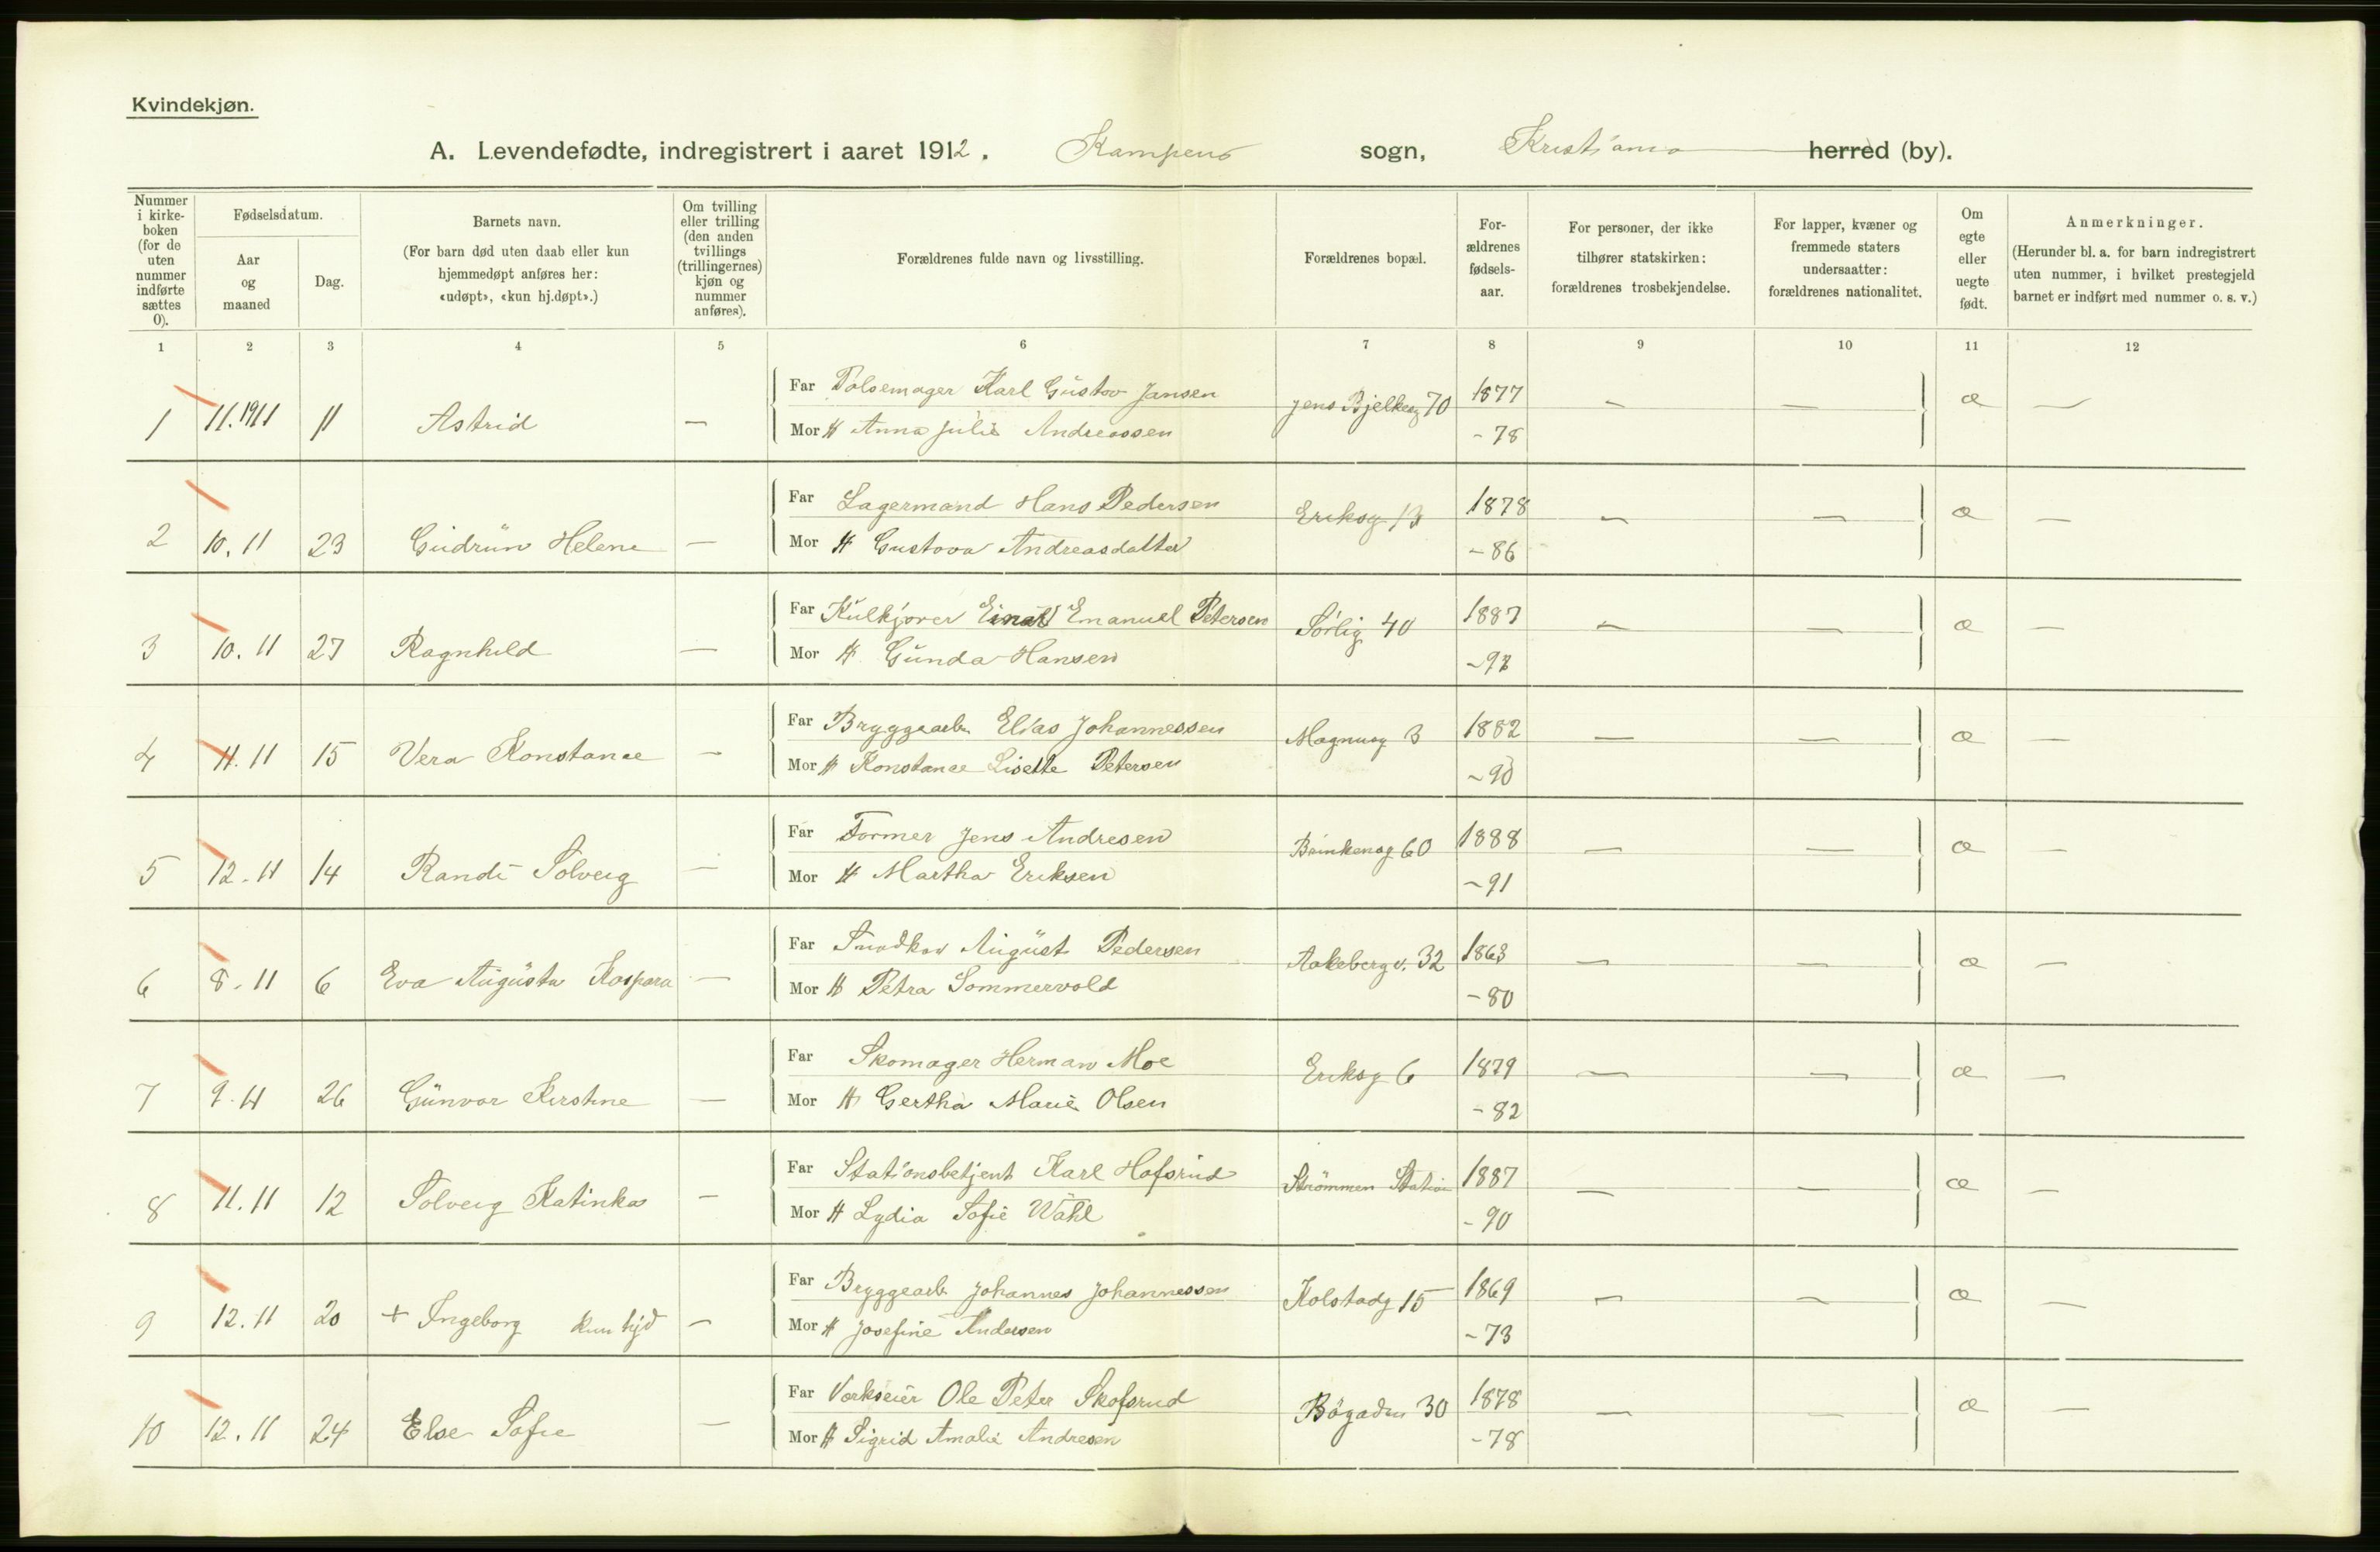 Kvindekjøn.
A. Levendefødte, indregistrert i aaret 1912. Kampens sogn, Kristiania herred (by).
Nummer i kirke-boken (for de uten nummer indførte sættes 0).
Fødselsdatum.
Aar og maaned
Dag.
Barnets navn.
(For barn død uten daab eller kun hjemmedøpt anføres her: «udøpt», «kun hj.døpt».)
Om tvilling eller trilling (den anden tvillings (trillingernes) kjøn og nummer anføres).
Forældrenes fulde navn og livsstilling.
Forældrenes bopæl.
For-ældrenes fødsels-aar.
For personer, der ikke tilhører statskirken: forældrenes trosbekjendelse.
For lapper, kvæner og fremmede staters undersaatter: forældrenes nationalitet.
Om egte eller uegte født.
Anmerkninger.
(Herunder bl. a. for barn indregistrert uten nummer, i hvilket prestegjeld barnet er indført med nummer o. s. v.)
1 2 3 4 5 6 7 8 9 10 11 12
Far Pølsemager Karl Gustav Jansen Jens Bjelkesg 70 1877 — — æ —
1 11.1911 11 Astrid — Mor H Anna Julie Andreassen - 78
Far Lagermand Hans Pedersen Eriksg 13 1878 — — æ —
2 10.11 23 Gudrun Helene — Mor H Gustava Andreasdatter - 86
Far Kulkjører Einar Emanuel Petersen Sørlig 40 1887 — — æ —
3 10.11 27 Ragnhild — Mor H Gunda Hansen
Far Bryggearb. Elias Johannessen Magnusg 3 1882 — — æ —
4 11.11 15 Vera Konstance — Mor H Konstance Lisette Petersen - 90
Far Former Jens Andresen Brinkensg 60 1888 — — æ —
5 12.11 14 Randi Solveig — Mor H Martha Eriksen - 91
Far August Pedersen Aakebergv. 32 1863 — — æ —
6 8.11 6 Eva Augusta Kaspara — Mor H Petra Sommervold - 80
Far Skomager Herman Moe Eriksg 6 1879 — — æ —
7 9.11 26 Gunvor Kirstine — Mor H Gertha Marie Olsen - 82
Far Stationsbetjent Karl Hofsrud Strømmen Station 1887 — — æ —
8 11.11 12 Solveig Katinka — Mor H Lydia Sofie Wahl - 90
Far Bryggearb. Johannes Johannessen Kolstadg 15 1869 — — æ —
9 12.11 20 + Ingeborg kun hjd — Mor H Josefine Andersen - 73
Far Verkseier Ole Peter Skofsrud Bøgaden 30 1878 — — æ —
10 12.11 24 Else Sofie — Mor H Sigrid Amalie Andresen - 78